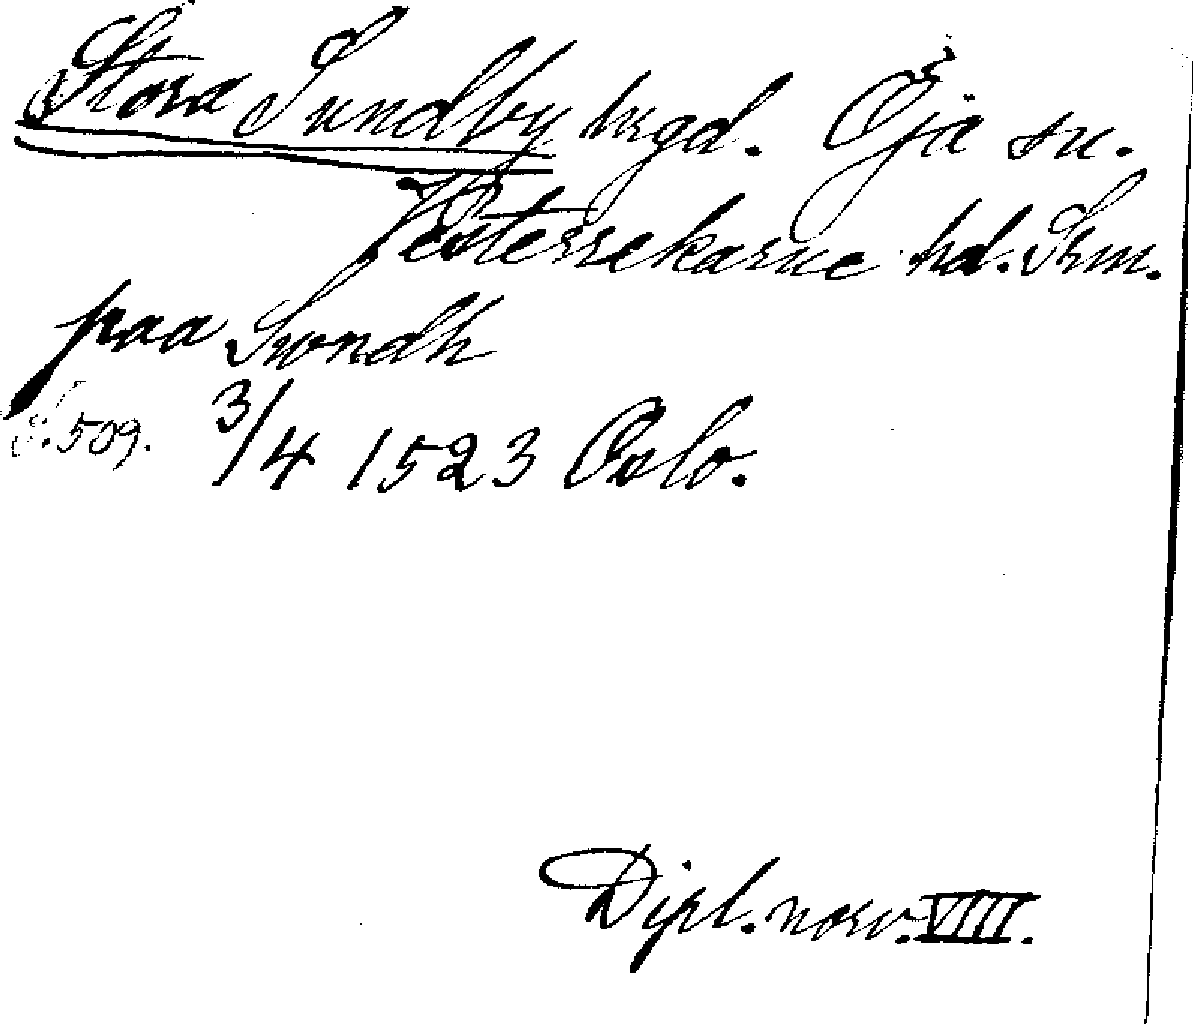 Stora Sundby hrgd. Öja sn.
Vesterrekarne hd. Srm.
paa Swndh
S. 509. 3/4 1523 Oslo.
Dipl. norv. VIII.